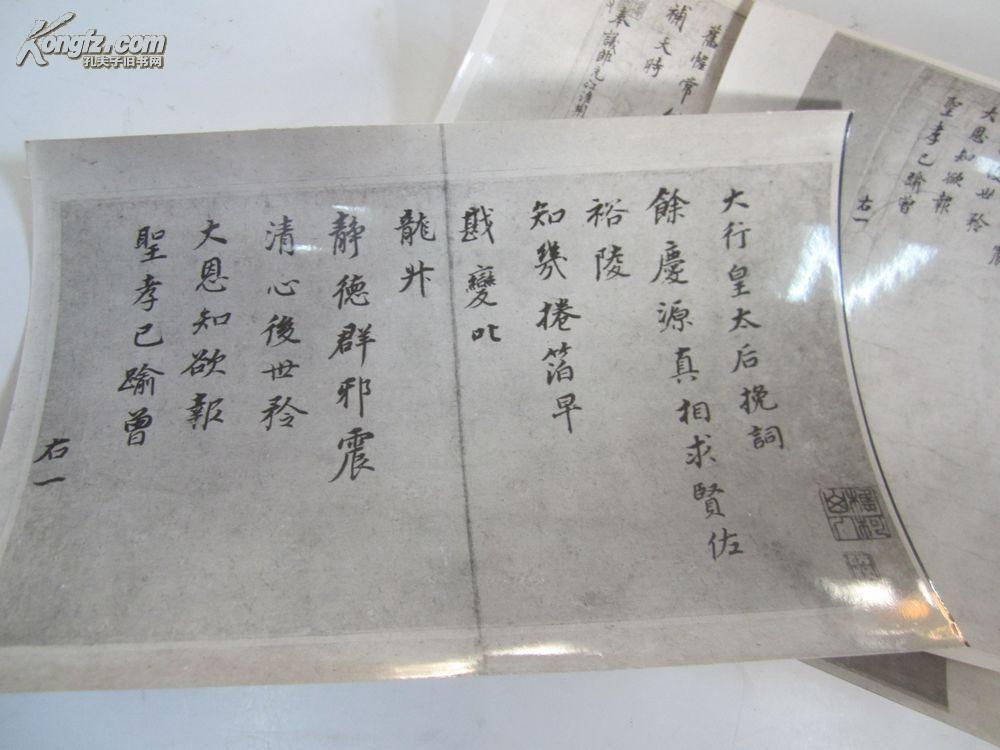 大行皇太后挽詞
餘慶源真相求賢佐
裕陵
知幾捲箔早
戡變叱
龍升
靜德群邪震
清心後世矜
大恩知欲報
聖孝已踰曾
右一
舊幄常
補天時
奉議郎充江淮
世矜
大恩知欲報
聖孝已踰曾
右一
Kongfz.com
孔夫子旧书网